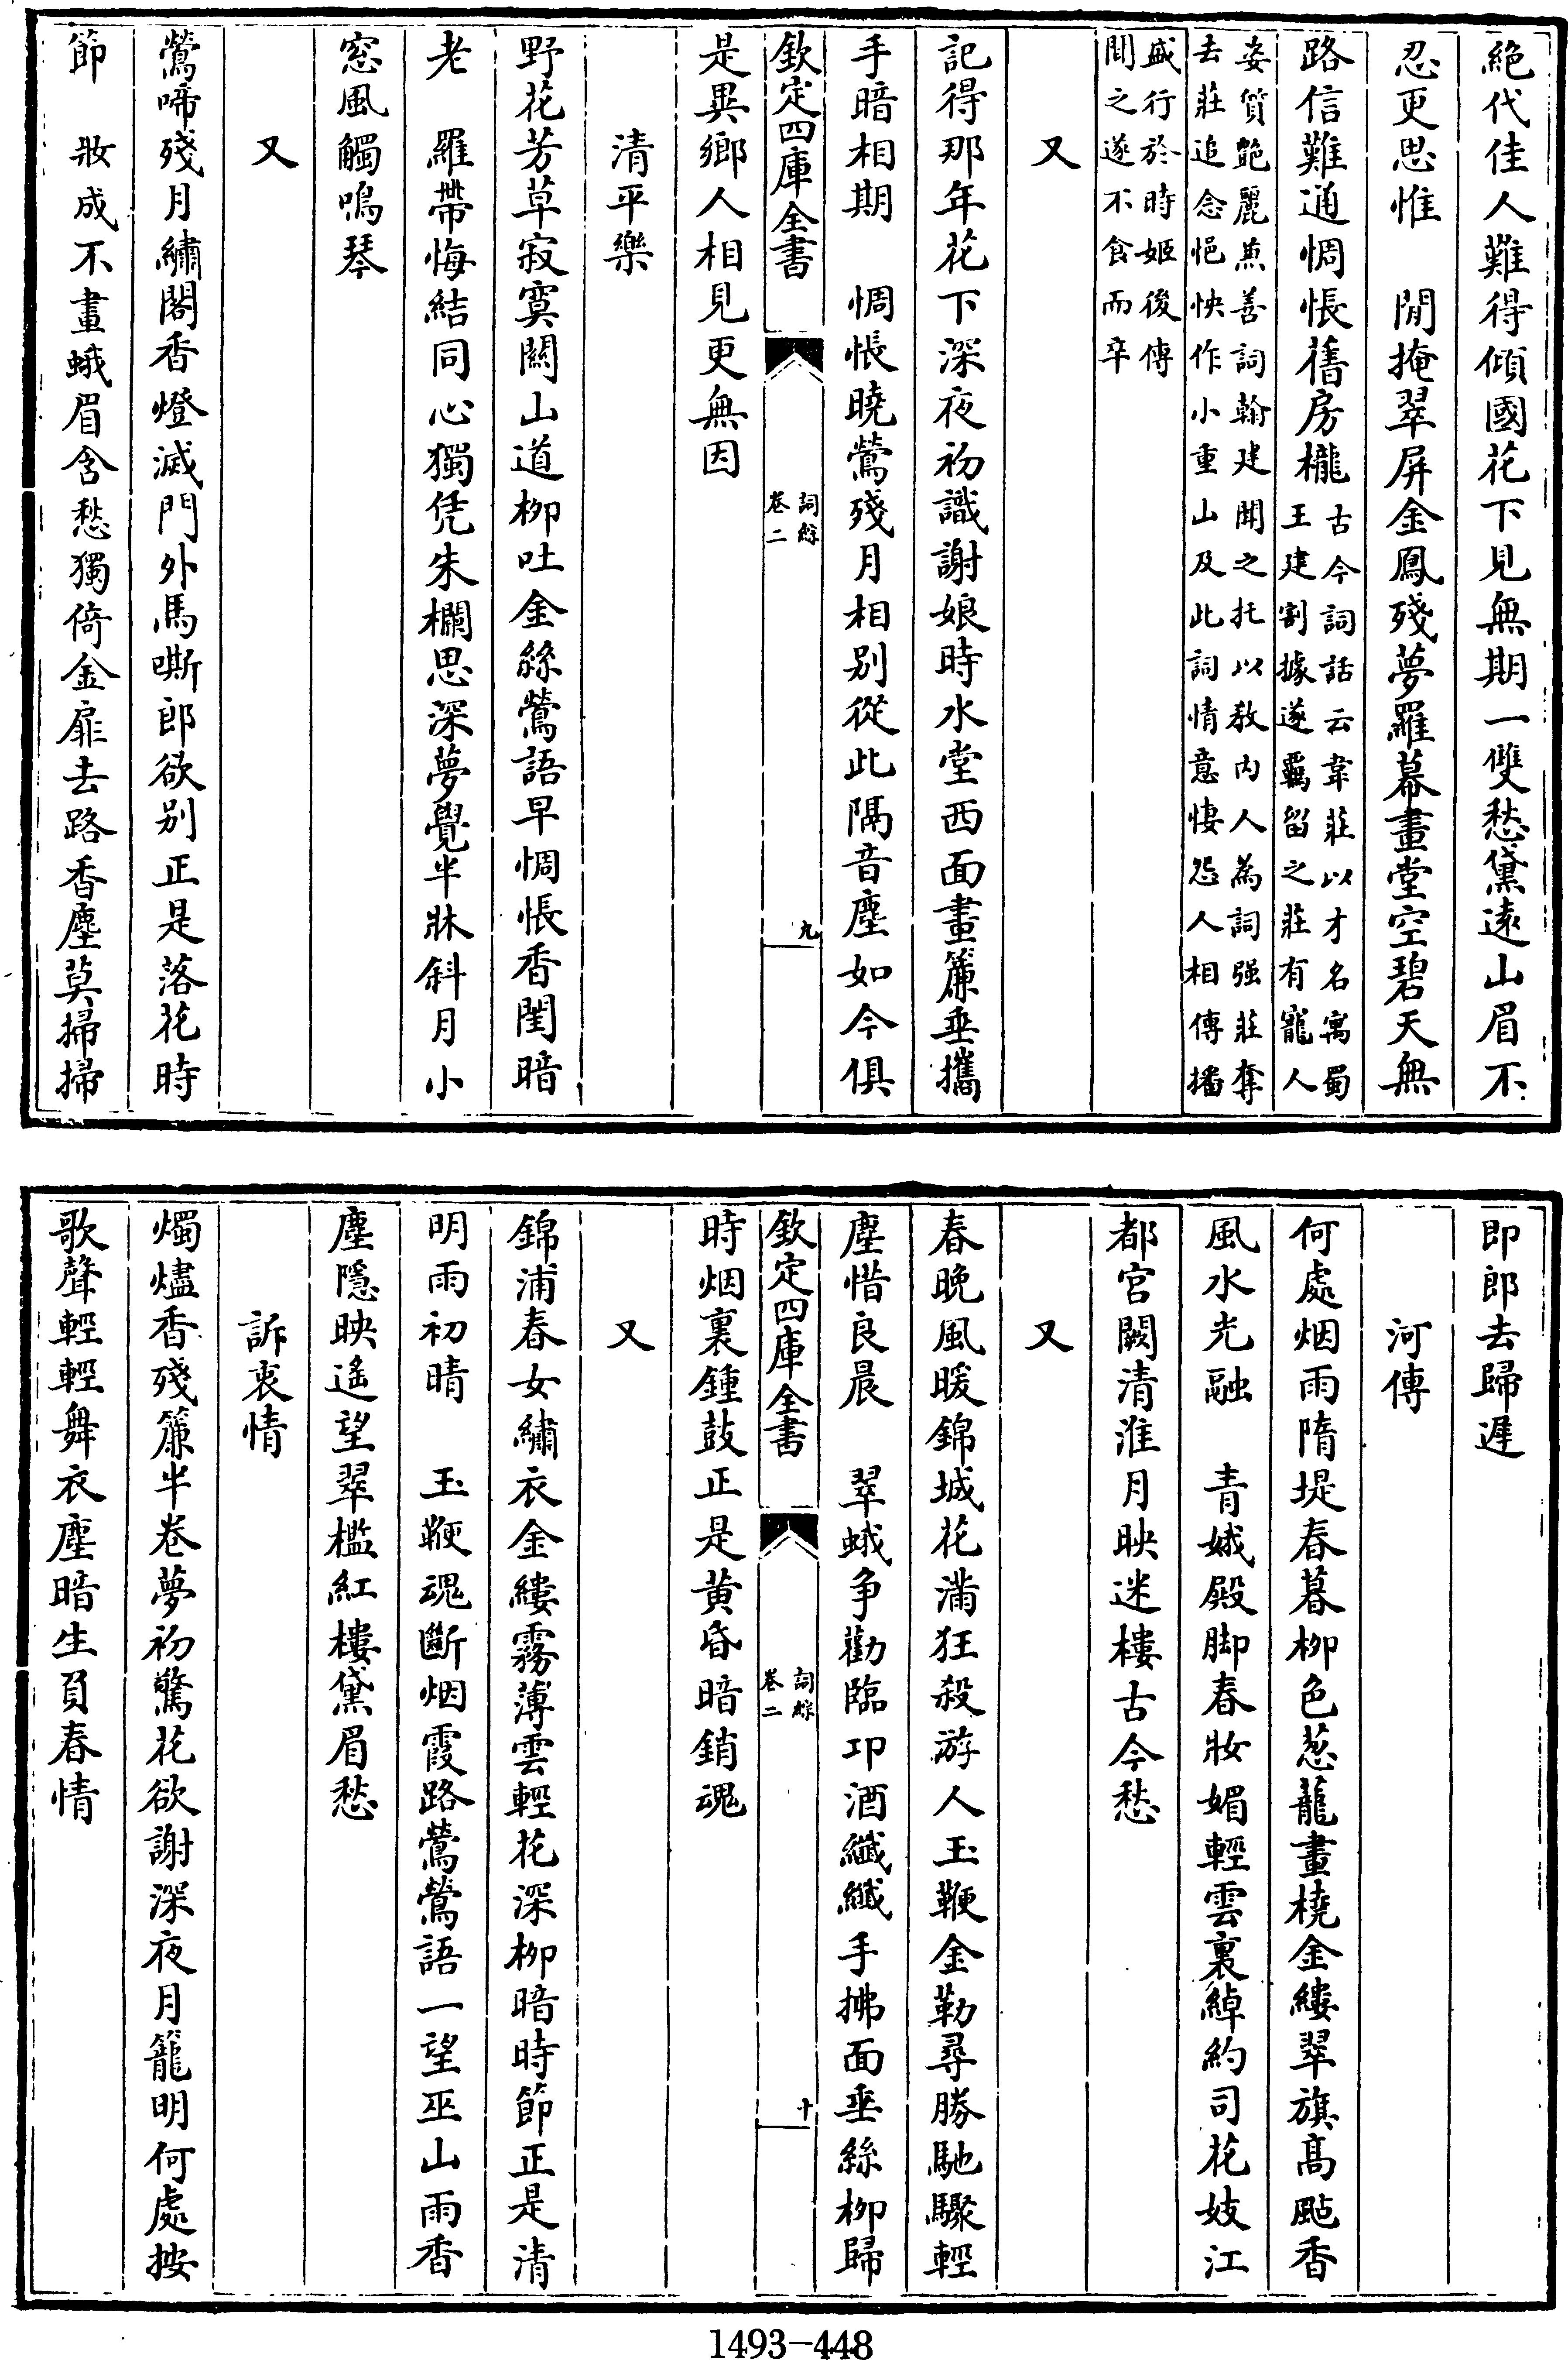 絶代佳人難得傾國花下見無期一雙愁黛逺山眉不
忍更思惟　閒掩翠屏金鳳殘夢羅幕畫堂空碧天無
路信難通惆悵舊房櫳古今詞話云韋莊以才名寓蜀
王建割據遂羈留之莊有寵人
姿質艶麗兼善詞翰建聞之托以教内人為詞强莊奪
去莊追念悒怏作小重山及此詞情意悽怨人相傳播
盛行於時姬後傳
聞之遂不食而卒
又
記得那年花下深夜初識謝娘時水堂西面畫簾垂攜
手暗相期　惆悵曉鶯殘月相别從此隔音塵如今俱
欽定四庫全書
詞綜
卷二
九
是異鄉人相見更無因
清平樂
野花芳草寂寞闗山道柳吐金絲鶯語早惆悵香閨暗
老　羅帶悔結同心獨凭朱欄思深夢覺半牀斜月小
窓風觸鳴琴
又
鶯啼殘月繡閣香燈滅門外馬嘶郎欲别正是落花時
節　妝成不畫蛾眉含愁獨倚金扉去路香塵莫掃掃
即郎去歸遲
河傳
何處烟雨隋堤春暮柳色葱蘢畫橈金縷翠旗髙颭香
風水光融　青娥殿脚春妝媚輕雲裏綽約司花妓江
都宫闕清淮月映迷樓古今愁
又
春晚風暖錦城花滿狂殺游人玉鞭金勒尋勝馳驟輕
塵惜良晨　翠蛾争勸臨卭酒纖纖手拂面垂絲柳歸
欽定四庫全書
詞綜
卷二
十
時烟裏鍾鼓正是黄昏暗銷魂
又
錦浦春女繡衣金縷霧薄雲輕花深柳暗時節正是清
明雨初晴　玉鞭魂斷烟霞路鶯鶯語一望巫山雨香
塵隱映遙望翠檻紅樓黛眉愁
訴衷情
燭燼香殘簾半卷夢初驚花欲謝深夜月籠明何處按
歌聲輕輕舞衣塵暗生負春情
1493-448